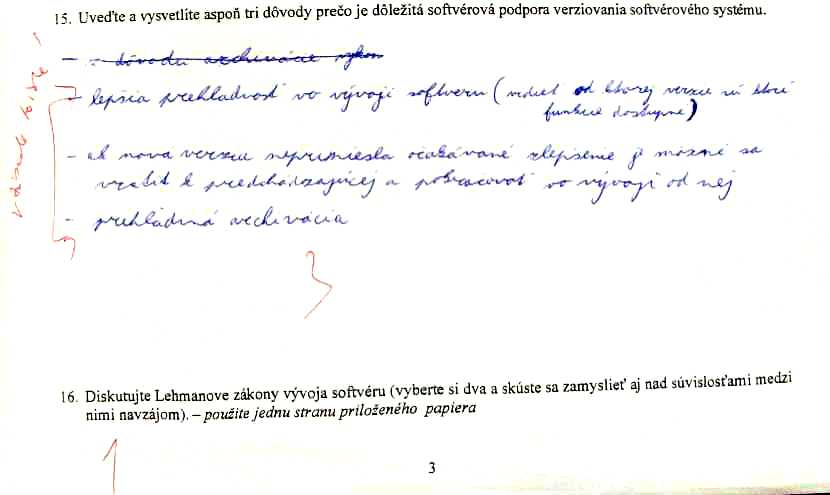 15. Uveďte a vysvetlite aspoň tri dôvody prečo je dôležitá softvérová podpora verziovania softvérového systému.
- lepšia prehľadnosť vo vývoji softveru (vidieť od ktorej verzie sú ktoré
funkcie dostupné)
- ak nova verzia nepriniesla očakávané zlepšenie je možné sa
vrátiť k predchádzajúcej a pokračovať vo vývoji od nej
- prehľadná archivácia
3
16. Diskutujte Lehmanove zákony vývoja softvéru (vyberte si dva a skúste sa zamyslieť aj nad súvislosťami medzi
nimi navzájom). – použite jednu stranu priloženého papiera
1
3